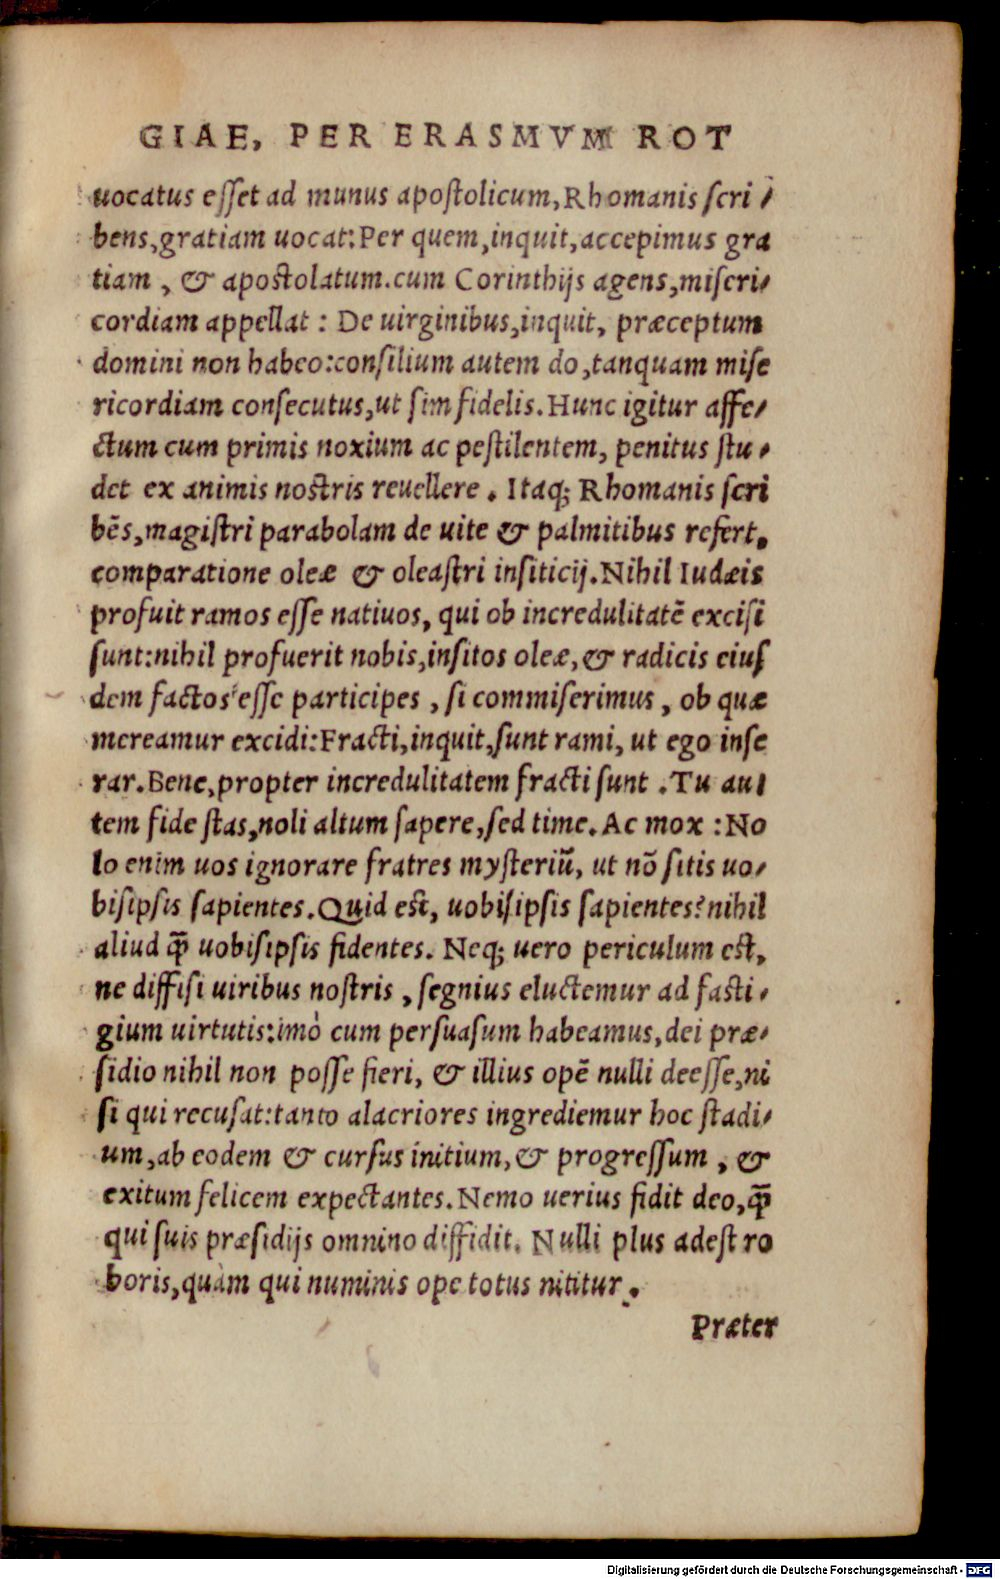 GIAE, PER ERASMVM ROT
uocatus esset ad munus apostolicum, Rhomanis scri-
bens, gratiam uocat: Per quem, inquit, accepimus gra
tiam, & apostolatum. cum Corinthijs agens, miseri-
cordiam appellat: De uirginibus, inquit, præceptum
domini non habeo: consilium autem do, tanquam mise
ricordiam consecutus, ut sim fidelis. Hunc igitur affe-
ctum cum primis noxium ac pestilentem, penitus stu-
det ex animis nostris reuellere. Itaq; Rhomanis scri
bēs, magistri parabolam de uite & palmitibus refert,
comparatione oleæ & oleastri insiticij. Nihil Iudæis
profuit ramos esse natiuos, qui ob incredulitatē excisi
sunt: nihil profuerit nobis, insitos oleæ, & radicis eius
dem factos esse participes, si commiserimus, ob quæ
mereamur excidi: Fracti, inquit, sunt rami, ut ego inse
rar. Bene, propter incredulitatem fracti sunt. Tu au-
tem fide stas, noli altum sapere, sed time. Ac mox: No
lo enim uos ignorare fratres mysteriū, ut nō sitis uo-
bisipsis sapientes. Quid est, uobisipsis sapientes? nihil
aliud q̄ uobisipsis fidentes. Neq; uero periculum est,
ne diffisi uiribus nostris, segnius eluctemur ad fasti-
gium uirtutis: imò cum persuasum habeamus, dei præ-
sidio nihil non posse fieri, & illius opē nulli deesse, ni
si qui recusat: tanto alacriores ingrediemur hoc stadi-
um, ab eodem & cursus initium, & progressum, &
exitum felicem expectantes. Nemo uerius fidit deo, q̄
qui suis præsidijs omnino diffidit. Nulli plus adest ro
boris, quàm qui numinis ope totus nititur.
Præter
Digitalisierung gefördert durch die Deutsche Forschungsgemeinschaft - DFG